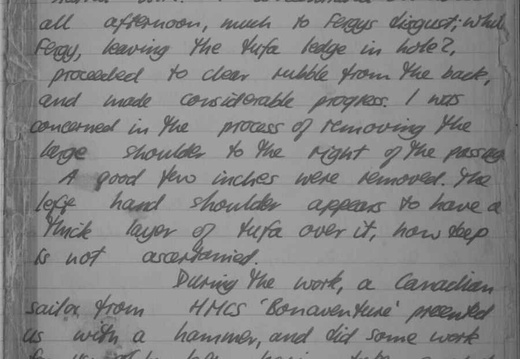 all afternoon, much to Fergys disgust; while
Fergy, leaving the tufa ledge in hole 2,
proceeded to clear rubble from the back,
and made considerable progress. I was
concerned in the process of removing the
large shoulder to the right of the passage
A good two inches were removed. The
left hand shoulder appears to have a
thick layer of tufa over it, how deep
is not ascertained.
During the work, a Canadian
sailor from HMCS 'Bonaventure' presented
us with a hammer, and did some work